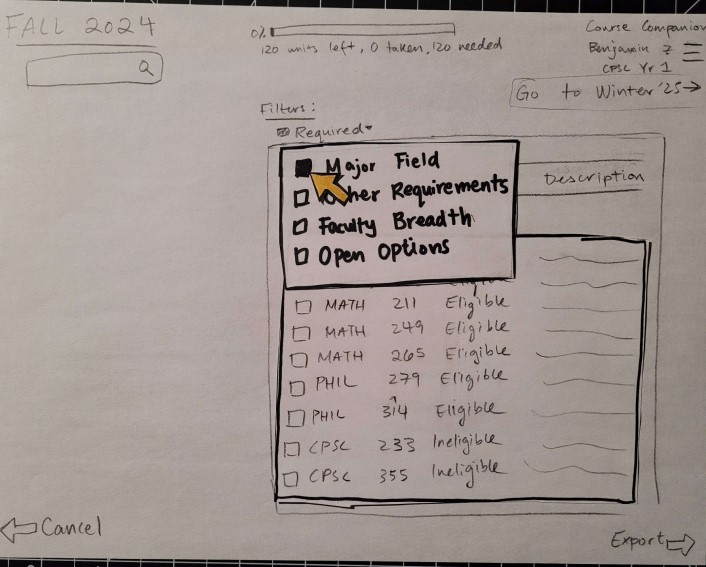 FALL 2024
0%
120 units left, 0 taken, 120 needed
Course Companion
Benjamin Z
CPSC Yr 1
Go to Winter '25→
Filters:
Required
Major Field
Other Requirements
Faculty Breadth
Open Options
Description
Eligible
MATH 211 Eligible
MATH 249 Eligible
MATH 265 Eligible
PHIL 279 Eligible
PHIL 314 Eligible
CPSC 233 Ineligible
CPSC 355 Ineligible
Cancel
Export